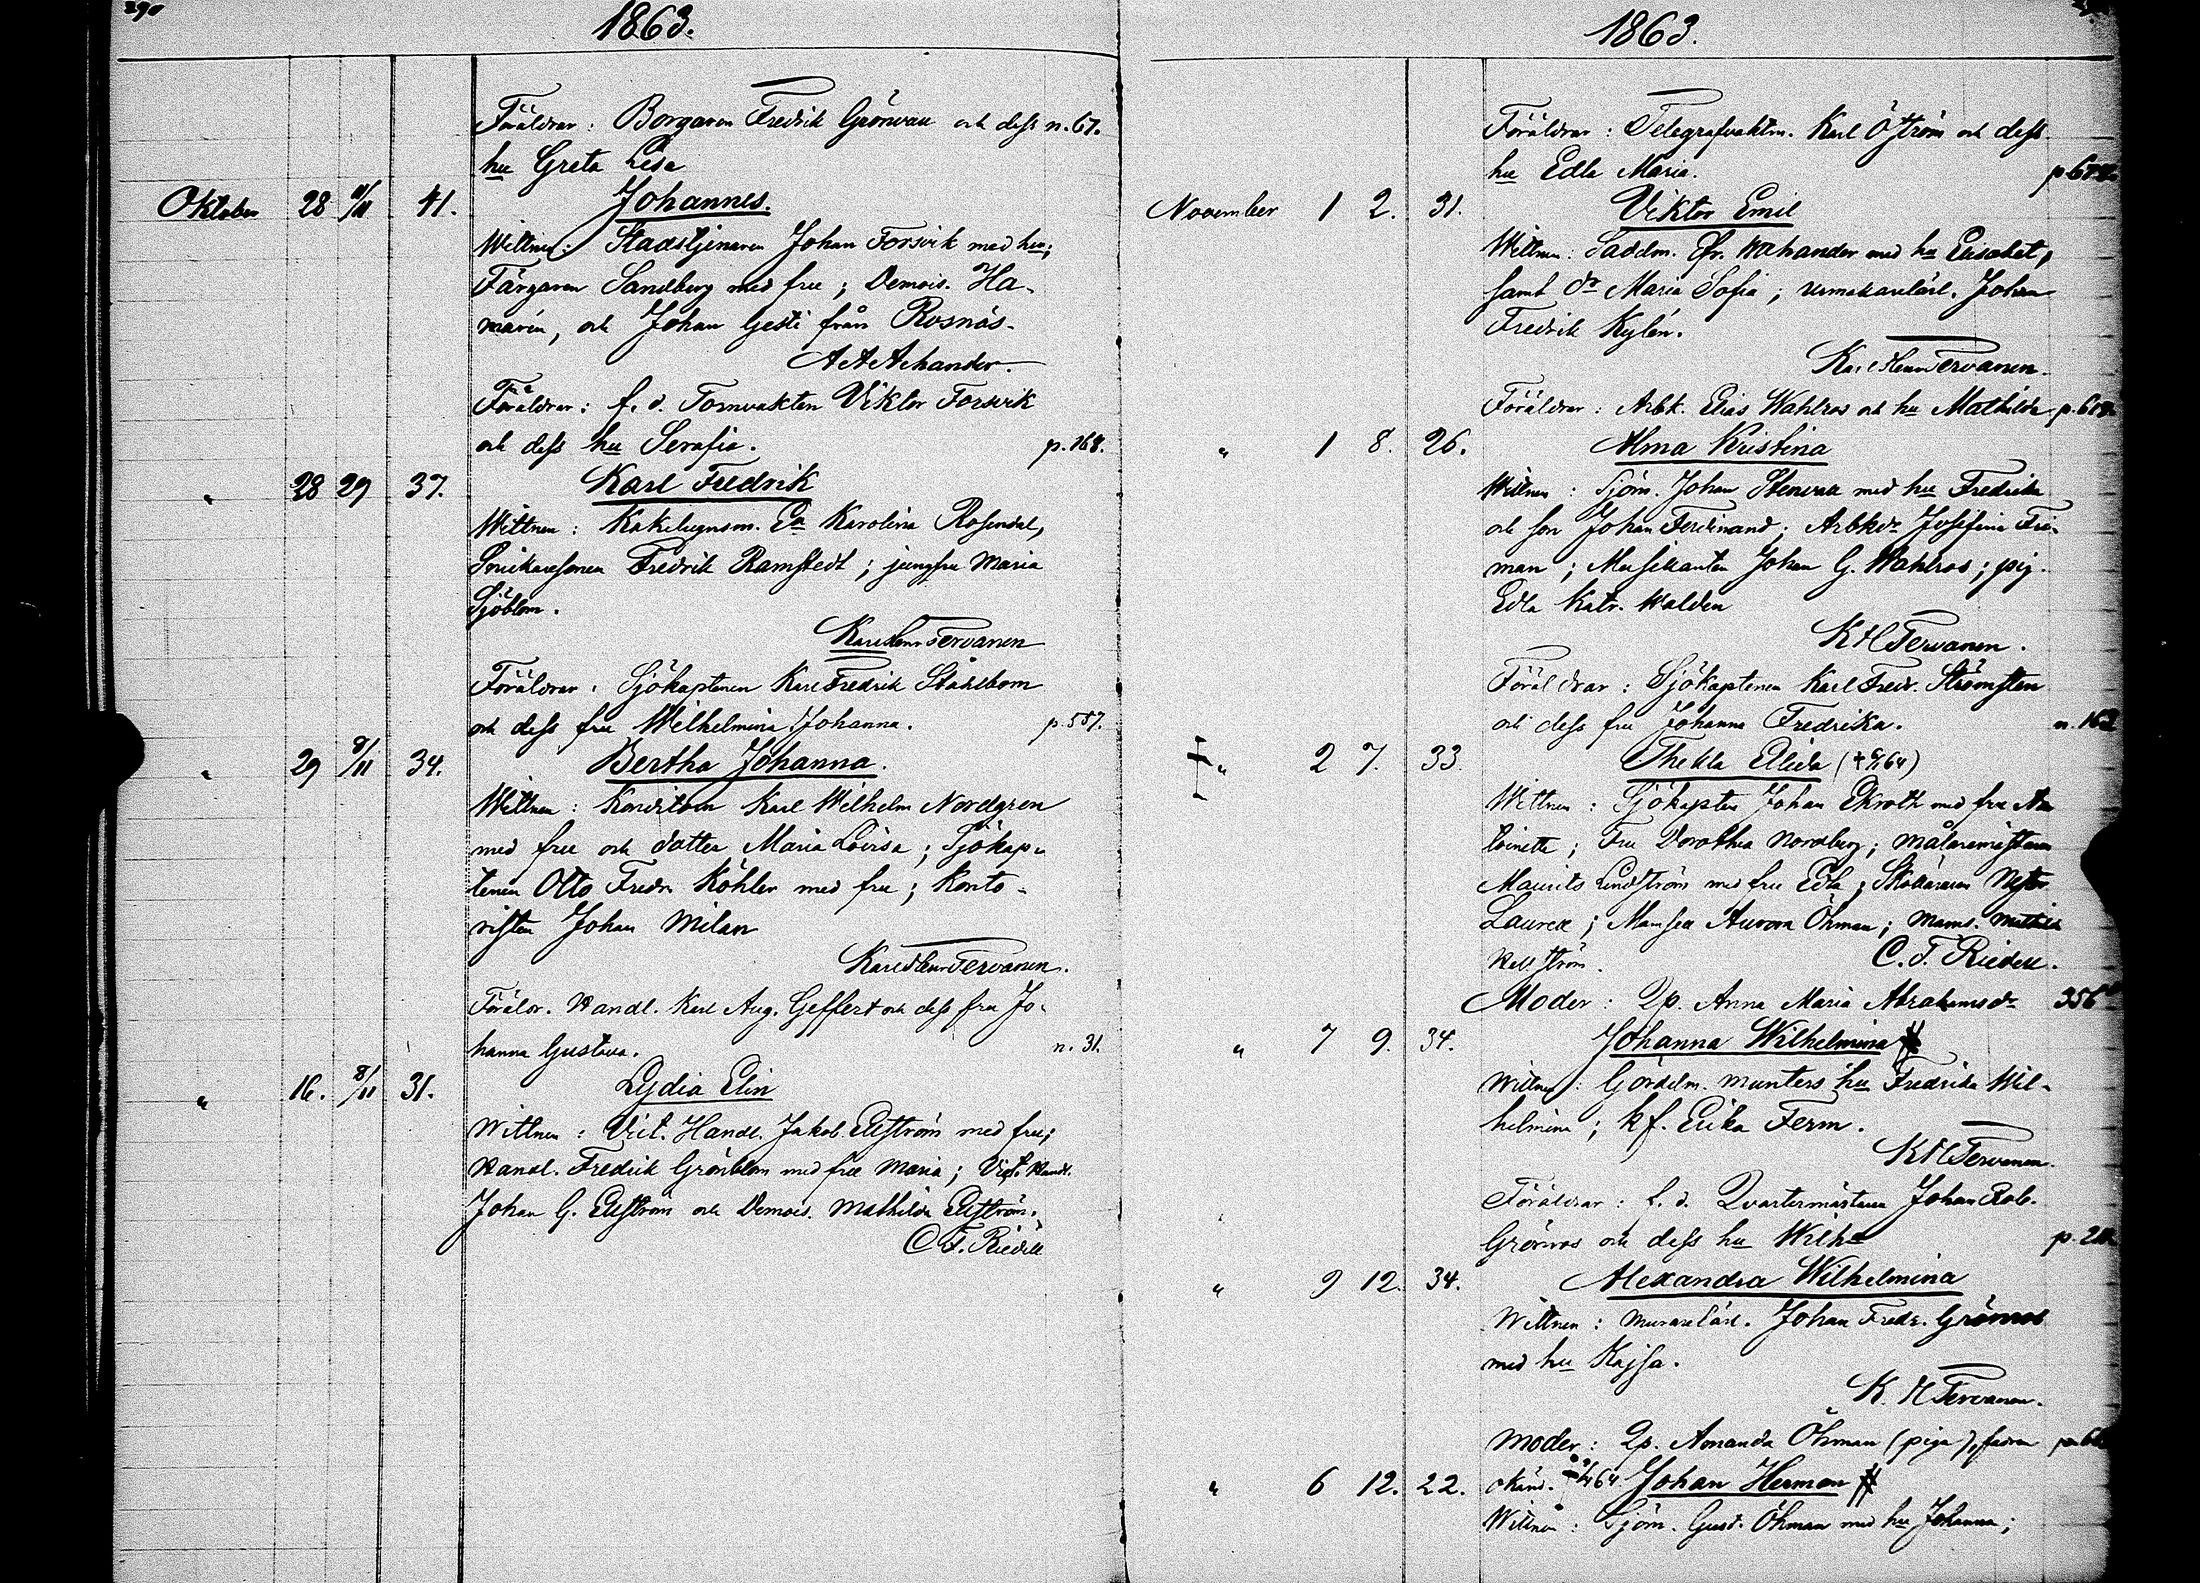 290
1863.
Föräldrar: Borgaren Fredrik Grönvall och dess n. 67.
hu Greta Lisa
Oktober 28 11/11 41. Johannes.
Wittnen: Stadstjenaren Johan Forsvik med hu;
Färgaren Sandberg med fru; Demois. Ha-
marén, och Johan Gesti från Rosnäs.
Föräldrar: f. d. Tornvakten Viktor Forsvik
och dess hu Serafia. p. 168.
" 28 29 37. Karl Fredrik
Wittnen: Kakelugnsm. Karolina Rosendal,
Snickaresonen Fredrik Ramstedt; jungfru Maria
Sjöblom.
Karl Henr Tervanen
Föräldrar: Sjökaptenen Karl Fredrik Ståhlbom
och dess fru Wilhelmina Johanna. p. 557.
" 29 8/11 34. Bertha Johanna.
Wittnen: Konditorn Karl Wilhelm Nordgren
med fru och dotter Maria Lovisa; Sjökap-
tenen Otto Fredr. Köhler med fru; Konto-
risten Johan Milan
Karl Henr Tervanen.
Föräldr. Handl. Karl Aug. Geffert och dess fru Jo-
hanna Gustava. n. 31.
" 16. 8/11 31. Lydia Elin
Wittnen: Vict. Handl. Jakob Ellström med fru;
Handl. Fredrik Grönblom med fru Maria; Vict. Handl.
Johan G. Ellström och Demois. Mathilda Ellström.
C. F. Ridell
1863.
Föräldrar: Telegrafvaktm. Karl Öström och dess
hu Edla Maria.
November 1 2. 31. Viktor Emil
Wittnen: Sadelm. Fr. Wahander med hu Elisabet,
samt dr Maria Sofia; urmakarelärl. Johan
Fredrik Kylén.
Karl Henr Tervanen.
Föräldrar: Arbk. Elias Wahlros och hu Mathilda
" 1 8. 26. Alma Kristina
Wittnen: Sjöm. Johan Stenvall med hu Fredrika
och son Johan Ferdinand; Arbkdr Josefina Fri-
man; Musikanten Johan G. Wahlros; pig.
Edla Katr. Walden
K H Tervanen.
Föräldrar: Sjökaptenen Karl Fredr. Strömsten
och dess fru Johanna Fredrika. n. 162
" 2 7. 33. Thekla Elida
Wittnen: Sjökapten Johan Ekroth med fru An
toinette; Fru Dorothea Nordberg; målaremästaren
Maurits Lindström med fru Edla;
Laurell; Mamsell Aurora Öhman; Mams.
C. F. Ridell.
Moder: Qp. Anna Maria Abrahamsdr 356
" 7 9. 34. Johanna Wilhelmina #
Wittnen: Gördelm. Munters hu Fredrika Wil-
helmina; kf. Erika Ferm.
K H Tervanen.
Föräldrar: f. d. Qvartermästaren Johan Rob.
Grönros och dess hu Wilha
" 9 12. 34. Alexandra Wilhelmina
Wittnen: murarelärl. Johan Fredr. Grönros
med hu Kajsa.
K. H Tervanen.
Moder: Qp. Amanda Öhman (piga), fadren
" 6 12. 22. okänd. Johan Herman #
Wittnen: Sjöm. Gust. Öhman med hu Johanna;